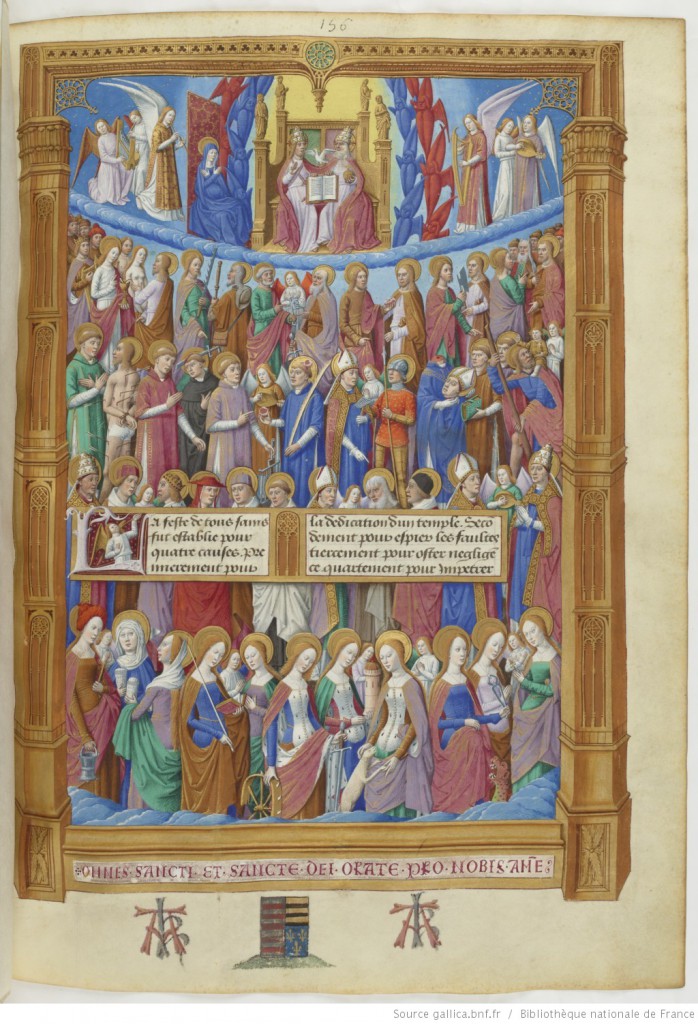 156
La feste de tous sains
fut establie pour
quatre causes. Pre
mierement pour
la dedication dun temple. Seco
dement pour espier les faultes
tiercement pour oster neglige
ce quartement pour impetrer
OMNES·SANCTI·ET·SANCTE·DEI·ORATE·PRO·NOBIS·AME
Source gallica.bnf.fr / Bibliothèque nationale de France